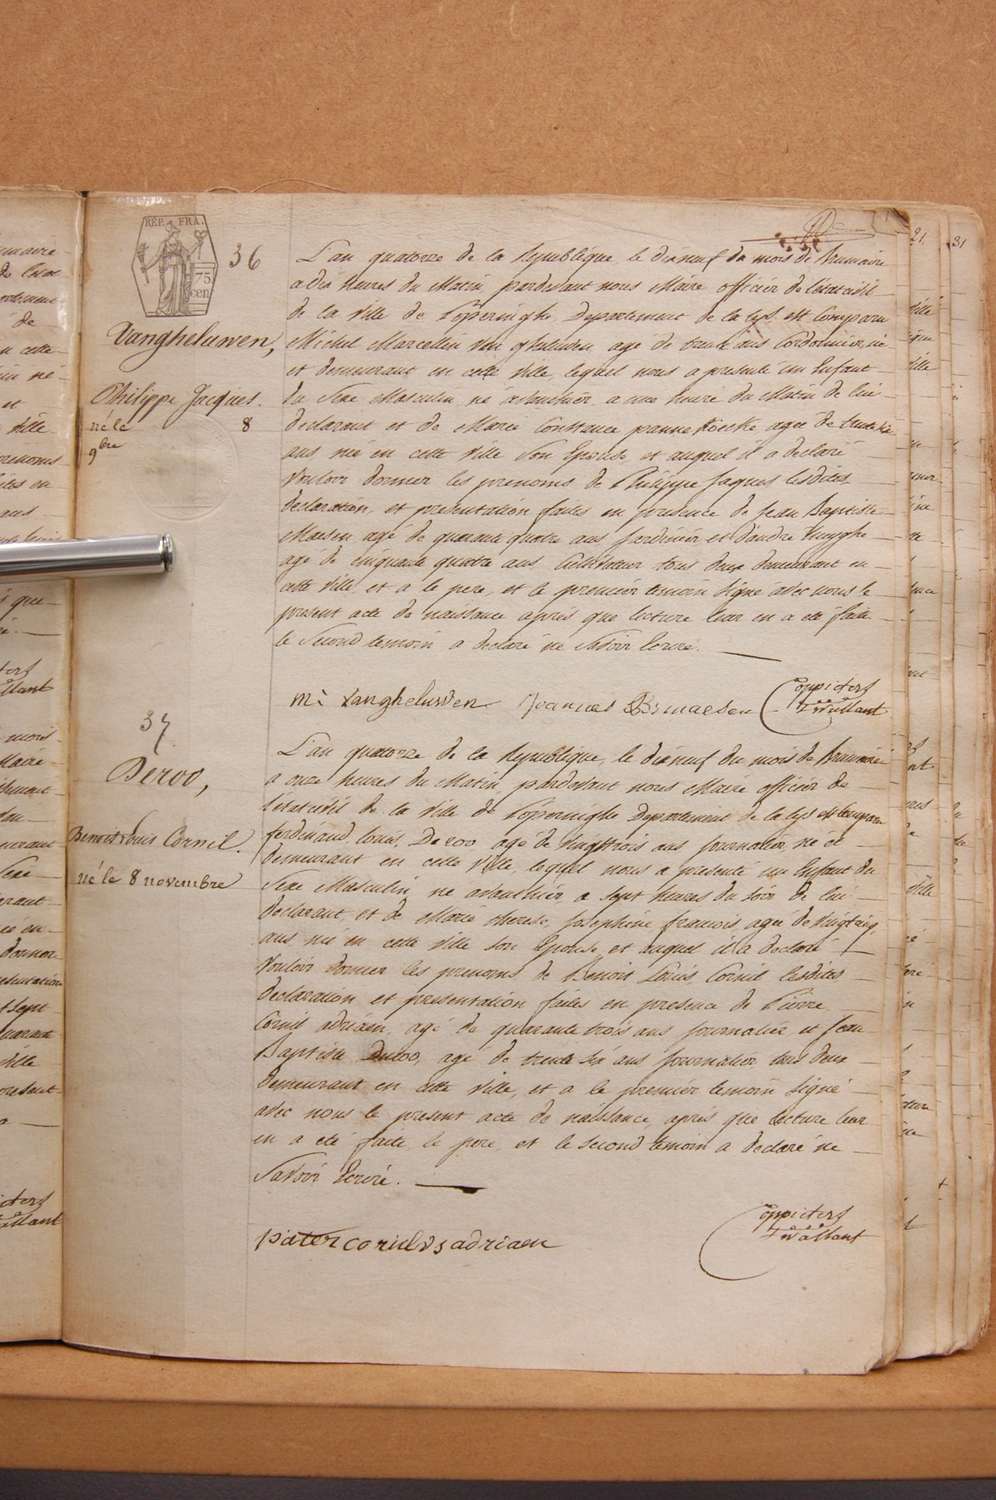 RÉP. FRA.
75
cen
36
21
31
Vangheluwen,
Philippe Jacques.
né le 8
9bre
L'an quatorze de la Republique, le dixneuf du mois de Brumaire
a dix heures du Matin, pardevant nous Maire officier de l'etatcivil
de la ville de Poperinghe, Departement de la Lys, est Comparu
Michel Marcellin Van gheluwen, age de trente ans Cordonnier, né
et demeurant en cette ville, lequel nous a presenté un Enfant
du Sexe Masculin, né avanthier a une heure du Matin de lui
declarant et de Marie Constance jeanne agée de
ans née en cette ville Son Epouse et auquel il a declaré
Vouloir donner les prenoms de Philippe Jaques lesdites
declaration, et presentation faites en presence de Jean Baptiste
Maesen agé de quarante quatre ans Jardinier et d'andre
agé de cinquante quatre ans Cultivateur tous deux demeurant en
cette ville et a le pere, et le premier temoin Signé avec nous le
present acte de naissance après que lecture leur en a eté faite
le Second temoin a declaré ne Savoir Ecrire.
Mi Vangheluwen Joannes B: maesen
37.
Deroo,
Benoit Louis Corneil.
né le 8 novembre
L'an quatorze de la Republique, le dixneuf du mois de Brumaire
a onze heures du Matin, pardevant nous Maire officier de
l'etatcivil de la ville de Poperinghe Departement de la Lys est Comparu
ferdinand Louis, Deroo agé de Vingttrois ans Journalier, né et
demeurant en cette ville, lequel nous a presenté un Enfant du
Sexe Masculin, né avanthier a Sept heures du Soir de lui
declarant, et de Marie therese, Josephine francois, agée de Vingtcinq
ans née en cette ville Son Epouse, et auquel il a declaré
Vouloir donner les prenoms de Benoit Louis Corneil lesdites
declaration et presentation faites en presence de Pierre
Corneil adriaen, agé de quarante trois ans Journalier, et Jean
Baptiste Deroo, agé de trente Six ans Journalier tous deux
demeurant en cette ville, et a le premier temoin Signé
avec nous le present acte de naissance, après que lecture leur
en a eté faite le pere, et le second temoin a declaré ne
Savoir Ecrire.
pater cornelus adriaen